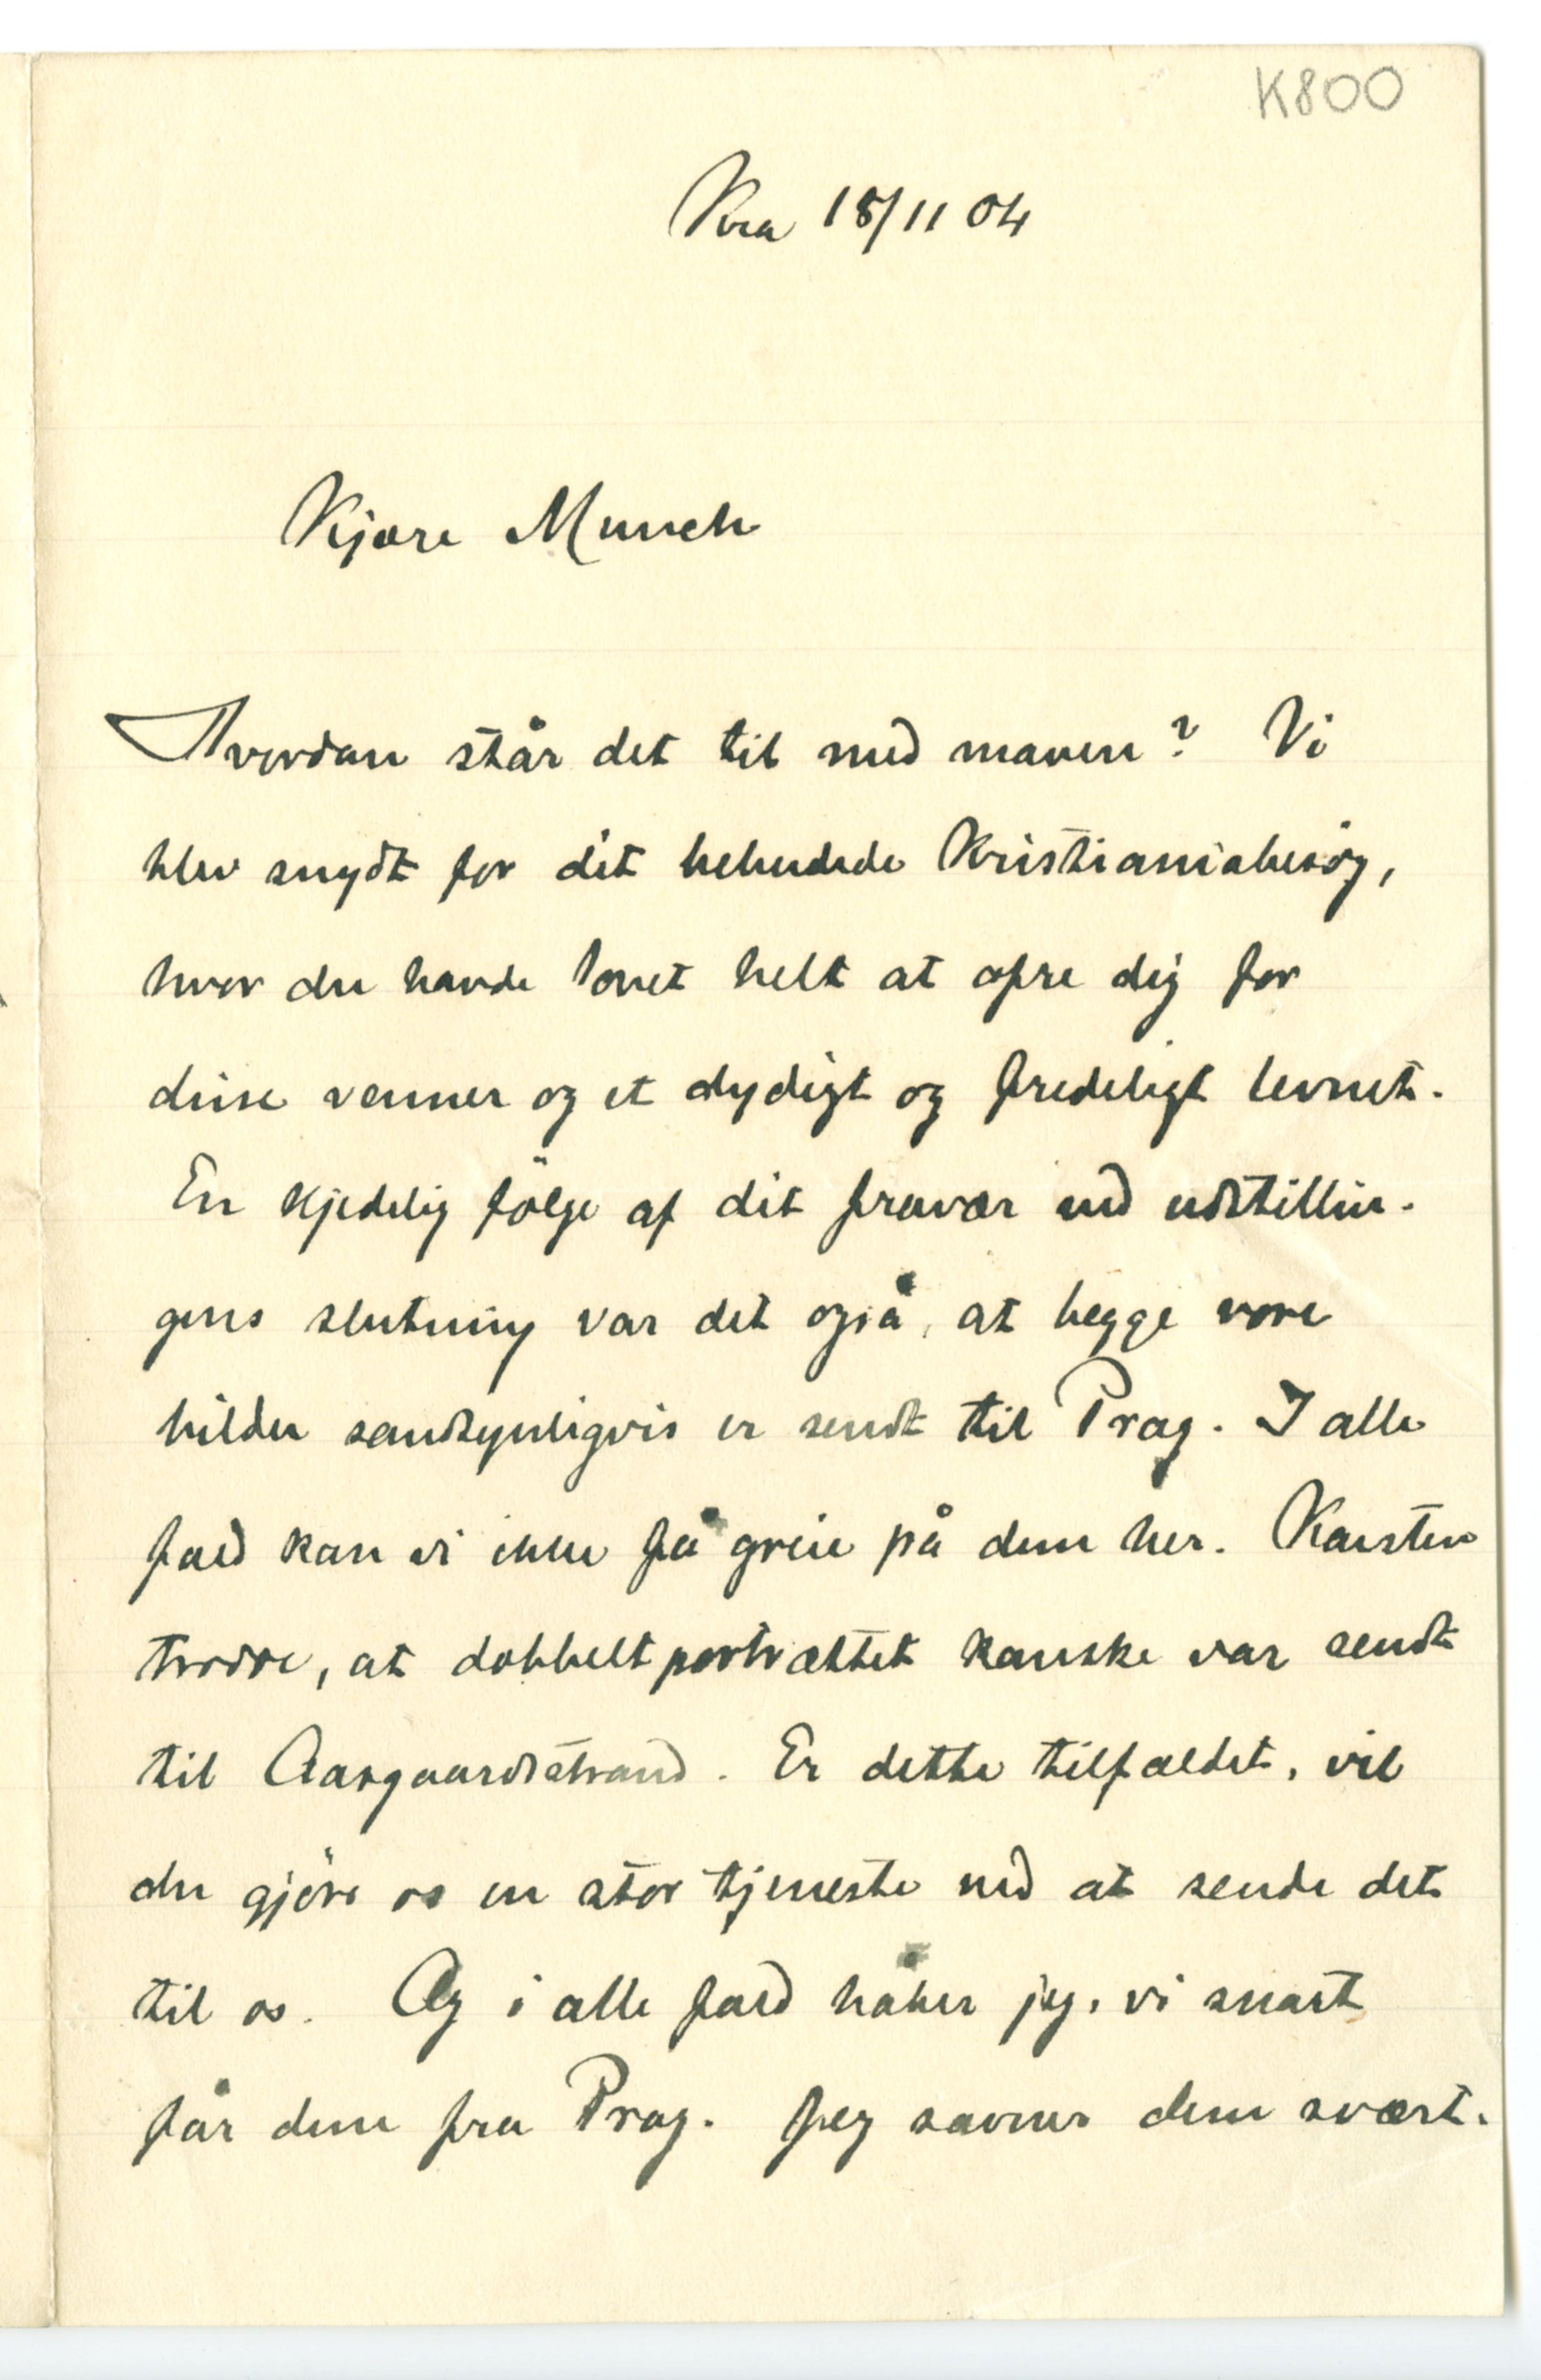 K800
Kra 18/11 04
Kjære Munch
Hvordan står det til med maven? Vi
blev snydt for dit bebudede Kristianiabesög,
hvor du havde lovet helt at ofre dig for
dine venner og et dydigt og fredeligt levnet.
En kjedelig fölge af dit fravær ved udstillin-
gens slutning var det også, at begge vore
bilder sandsynligvis er sendt til Prag. I alle
fald kan vi ikke få greie på dem her. Karsten
trode, at dobbeltportrættet kanske var sendt
til Aasgaardstrand. Er dette tilfældet, vil
du gjöre os en stor tjeneste ved at sende det
til os. Og i alle fald håber jeg, vi snart
får dem fra Prag. Jeg savner dem svært.